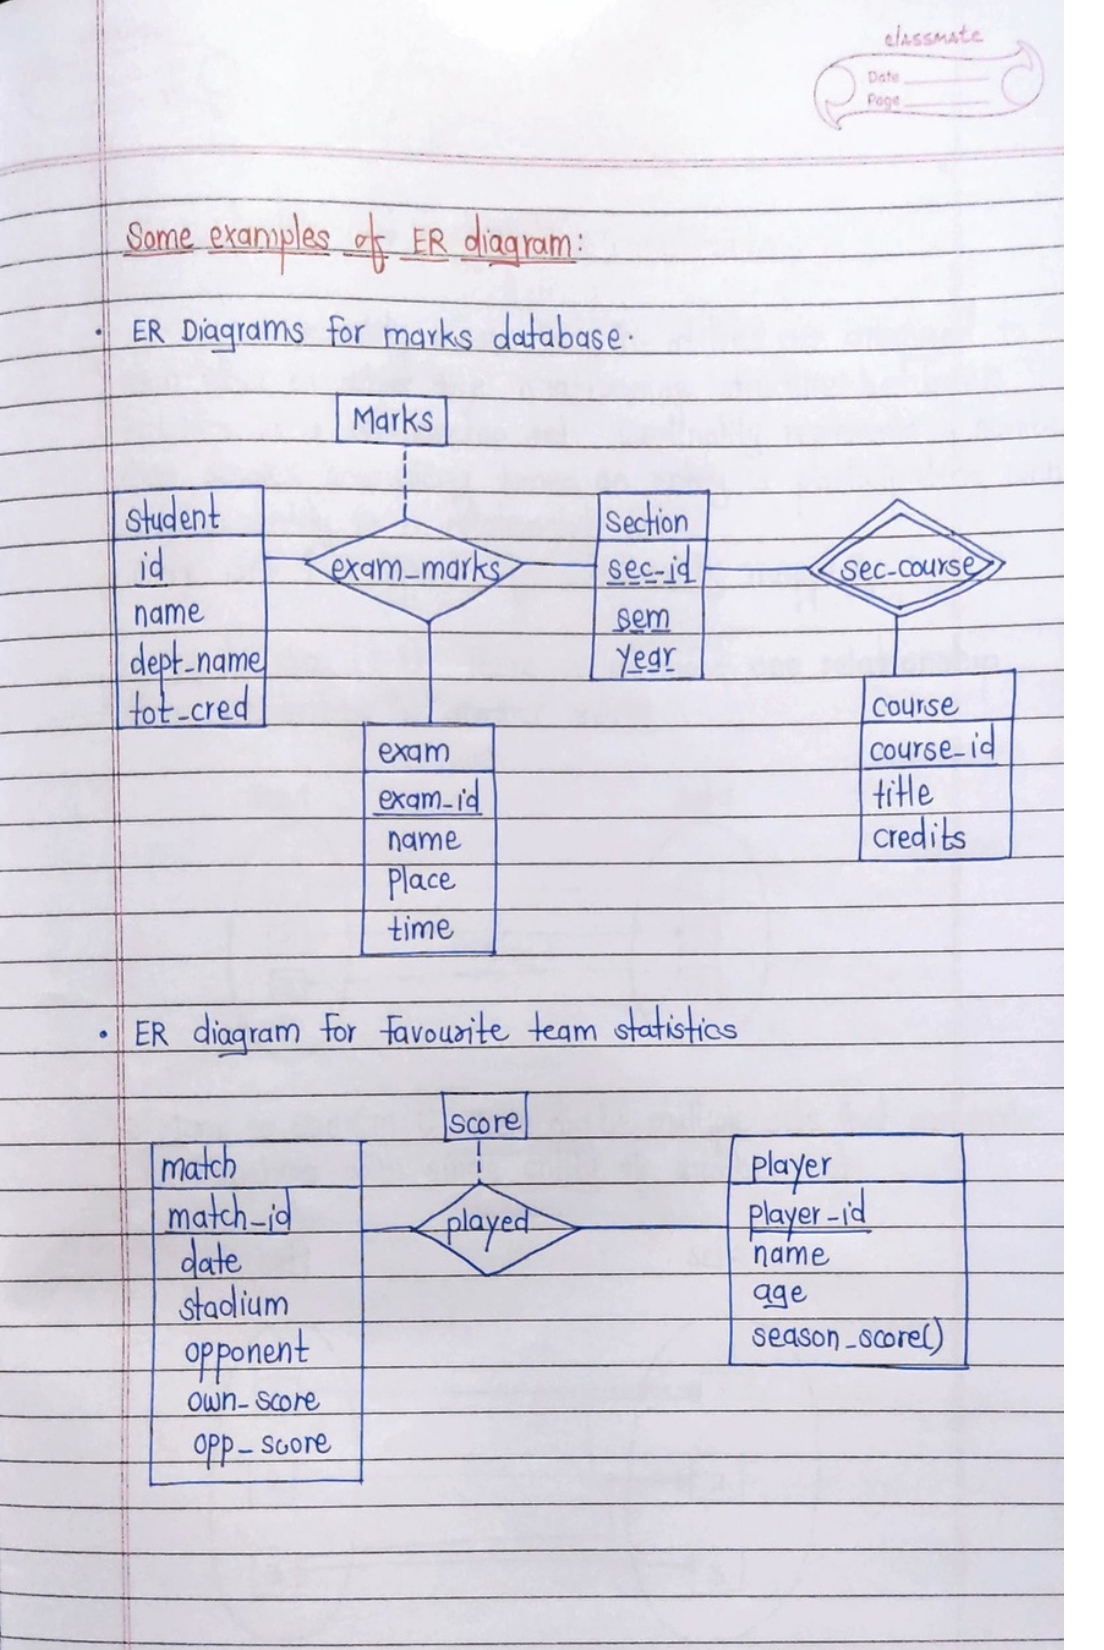 classmate
Date
Page
Some examples of ER diagram:
• ER Diagrams for marks database.
Marks
student
id
name
dept_name
tot_cred
exam_marks
section
sec-id
sem
year
sec-course
course
course_id
title
credits
exam
exam_id
name
place
time
• ER diagram for favourite team statistics
score
match
match_id
date
stadium
opponent
own_score
opp_score
played
player
player_id
name
age
season_score()